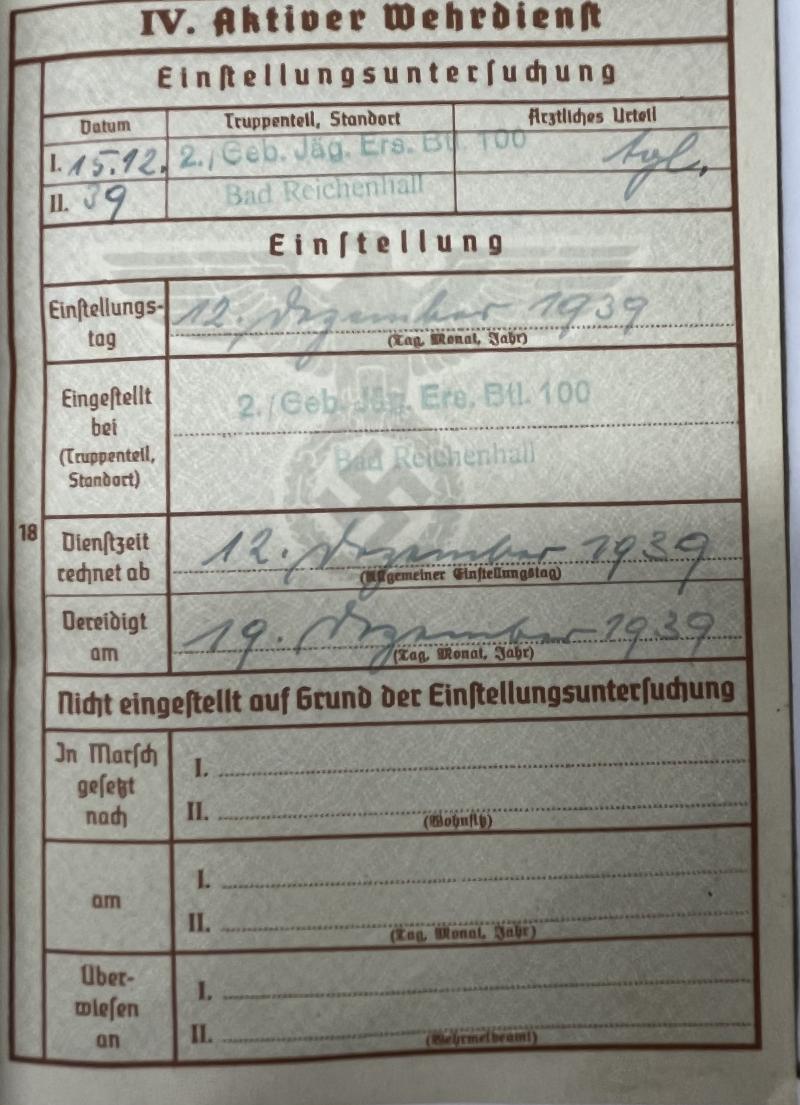 IV. Aktiver Wehrdienst
Einstellungsuntersuchung
Datum Truppenteil, Standort Ärztliches Urteil
I. 15.12. 2./Geb. Jäg. Ers. Btl. 100 tgl.
II. 39 Bad Reichenhall
Einstellung
Einstellungs- 12. Dezember 1939
tag (Tag, Monat, Jahr)
Eingestellt 2./Geb. Jäg. Ers. Btl. 100
bei
(Truppenteil, Bad Reichenhall
Standort)
18
Dienstzeit 12. Dezember 1939
rechnet ab (Allgemeiner Einstellungstag)
Vereidigt 19. Dezember 1939
am (Tag, Monat, Jahr)
Nicht eingestellt auf Grund der Einstellungsuntersuchung
In Marsch I.
gesetzt
nach II.
(Wohnsitz)
I.
am
II.
(Tag, Monat, Jahr)
Über- I.
wiesen
an II.
(Wehrmeldeamt)